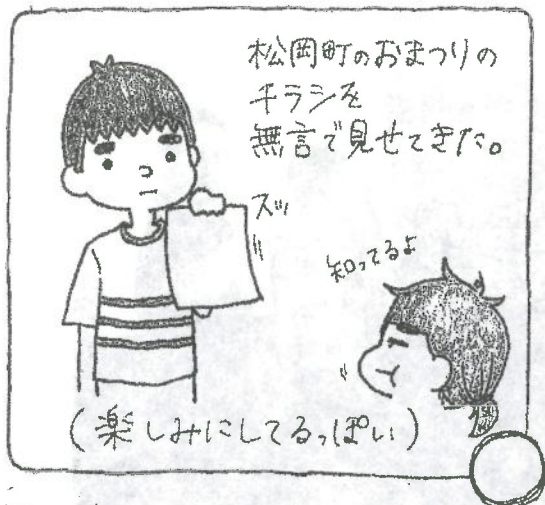 松岡町のおまつりの
チラシを
無言で見せてきた。
ズッ
知ってるよ
(楽しみにしてるっぽい)